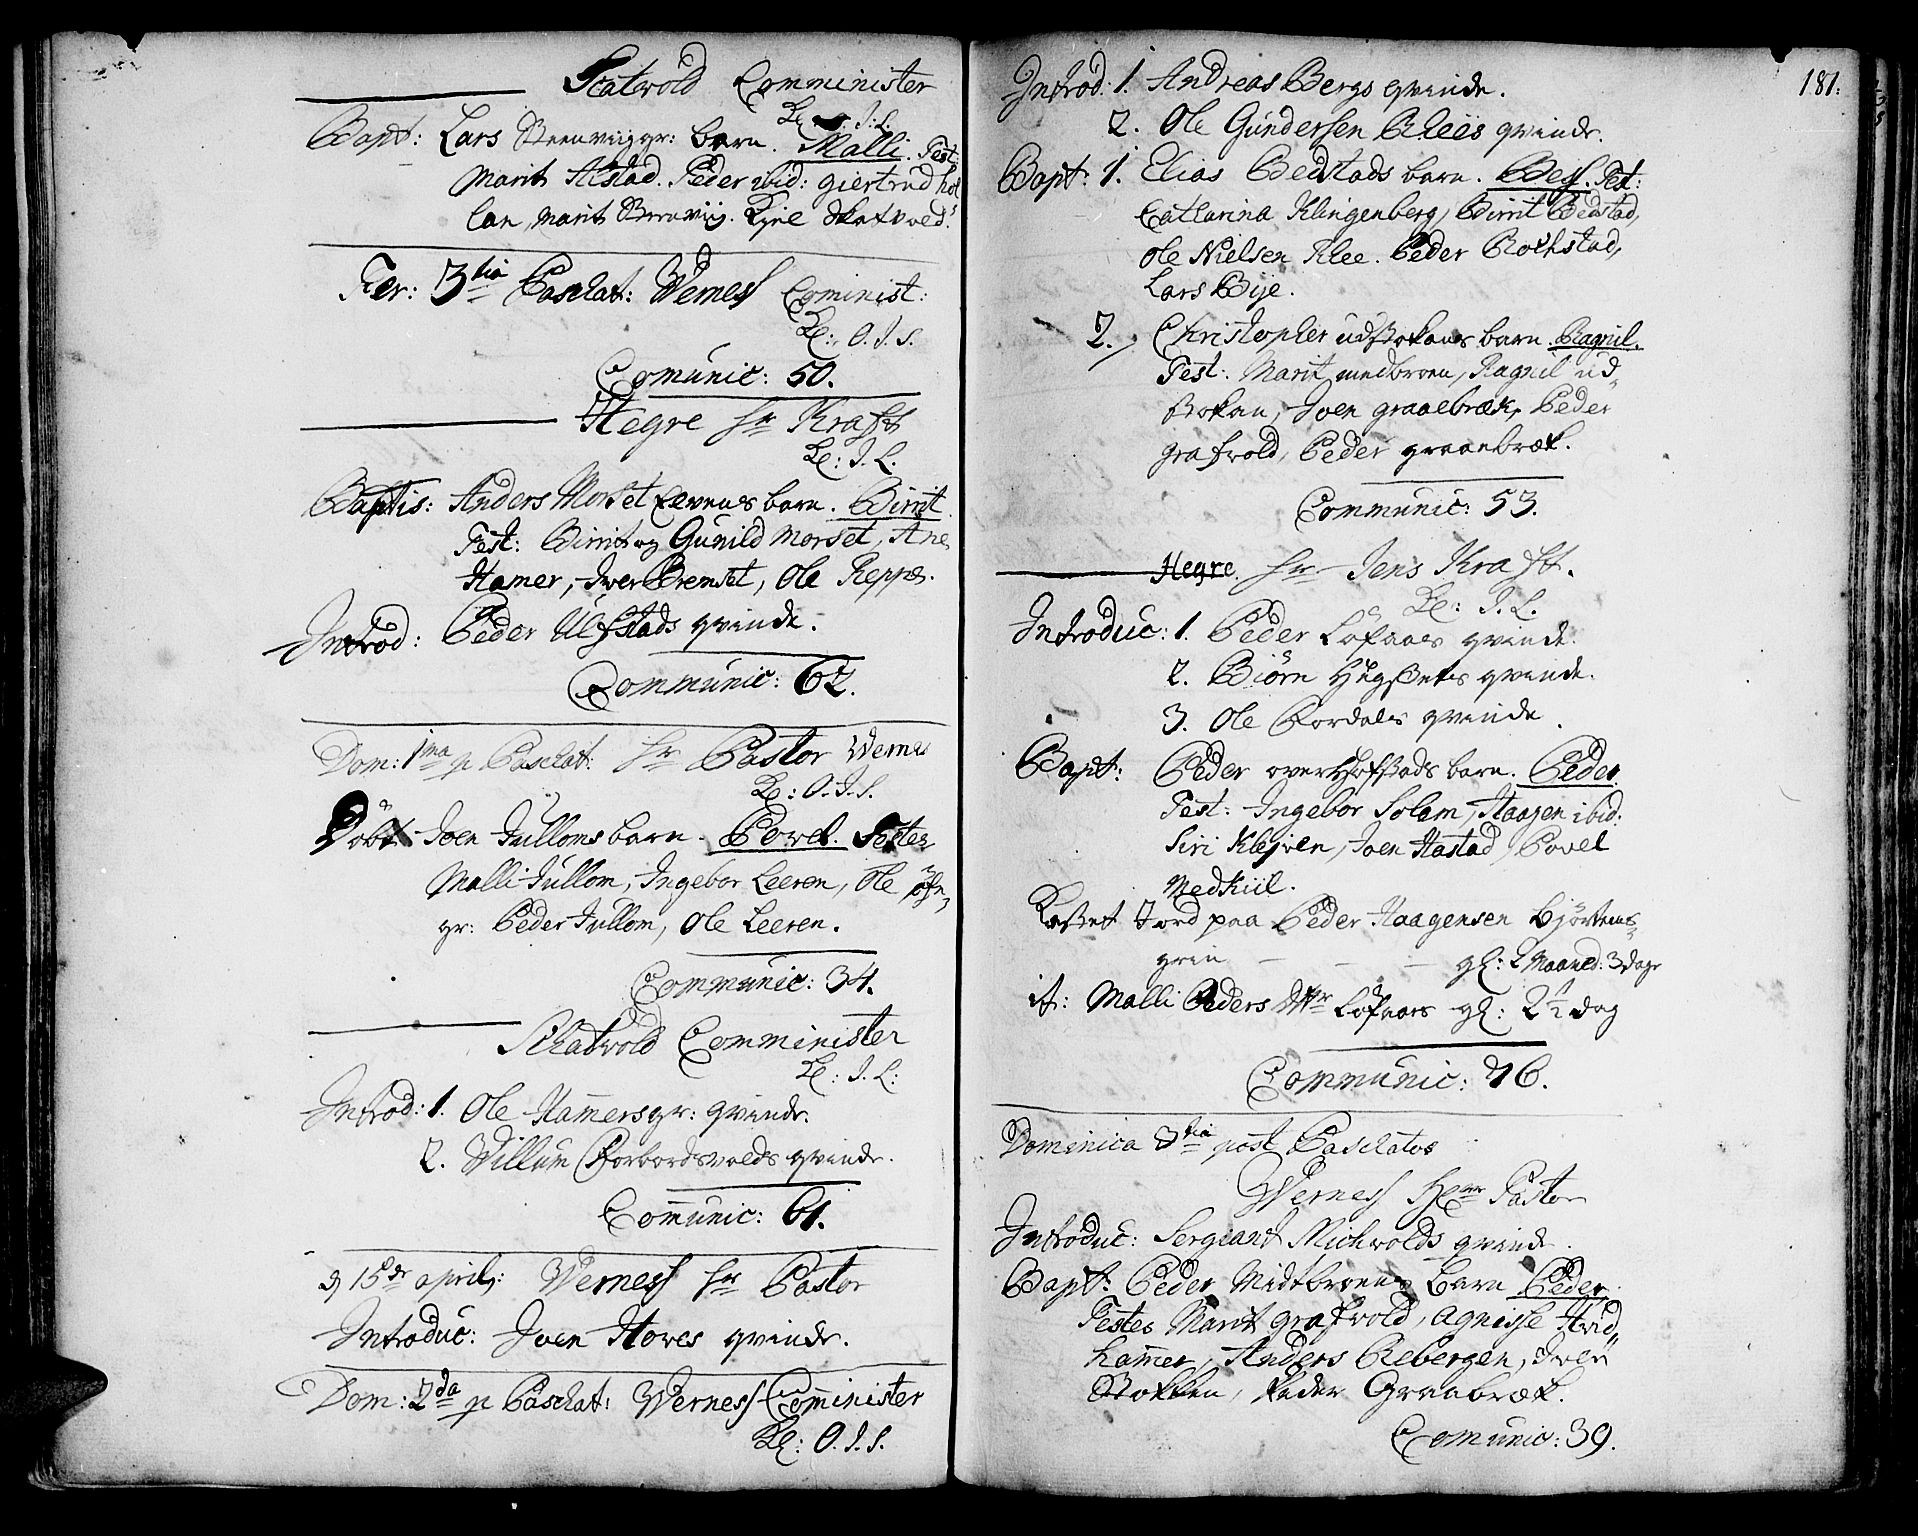 Scatwold Comminister
Bapt: Lars Steenvig gr: barn. Malli. Test:
Marit Alstad. Peder ibid: giertrud hol
lan, Marit Steenviig. Kjel Skatvold.
Fer: 3tia Paschat: Werness Cominist:
Kl: O. J. S.
Comunic: 50.
Hegre hr Krafft
Kl: J. L.
Baptis: Anders Morset Elvens barn. Birrit
Test: Birrit og Gunild Morset, Ane
Hamer, Iver Bremset, Ole Reppe.
Introd: Peder Ulfstads qvinde.
Communic: 62.
Dom: 1ma p Paschat: hr Pastor Wernes
Kl: O. J. S.
Döbt Joen Julloms barn. Powel. Testes
Malli Jullom, Ingebor Leeren, Ole
gr: Peder Jullom, Ole Leeren.
Communic: 34.
Schatwold Comminister
Kl: J. L:
Introd: 1. Ole Hamersgr: qvinde.
2. Willum Forbordsvolds qvinde.
Comunic: 61.
d 15de april: Werness hr Pastor
Introduc: Joen Howes qvinde.
Dom: 2da p Paschat: Werness Cominister
Kl: O. J. S.
181.
Introd: 1. Andreas Bergs qvinde.
2. Ole Gundersen Klees qvinde.
Bapt: 1. Elias Bedstads barn. Bes. Test:
Catharina Klingenberg, Birrit Bedstad,
Ole Nielsen Klee. Peder Rothstad,
Lars Bije.
2. Christopher udstokens barn. Ragnil.
Test: Marit medbroen, Ragnil ud-
stokan, Joen graaebræk, Peder
grafwold, Peder graaebræk.
Communic: 53.
Hegre. hr Jens Krafft.
Kl: J. L.
Introduc: 1. Peder Lofaaes qvinde.
2. Biörn qvinde.
3. Ole Fordals qvinde.
Bapt: Peder overhofstads barn. Peder.
Test: Ingebor Solem, Haagen ibid:
Siri Klejven, Joen Hastad, Povel
Medkiil.
Kastet Jord paa Peder Haagensen Bjørtems-
grin — — — gl: 2 Maaned: 3 dage
it: Malli Peders dttr Lofaaes gl: 2 1/2 dag
Communic: 76.
Dominica 3tia post Paschatos
Werness Herr Pastor
Introduc: Sergiant Richwolds qvinde.
Bapt: Peder Midtbroens barn Peder
Testes Marit grafwold, Agnisse Hvid
hamer, Anders Rebergen, Iver
Stokken, Peder Graabræk.
Comunic: 39.